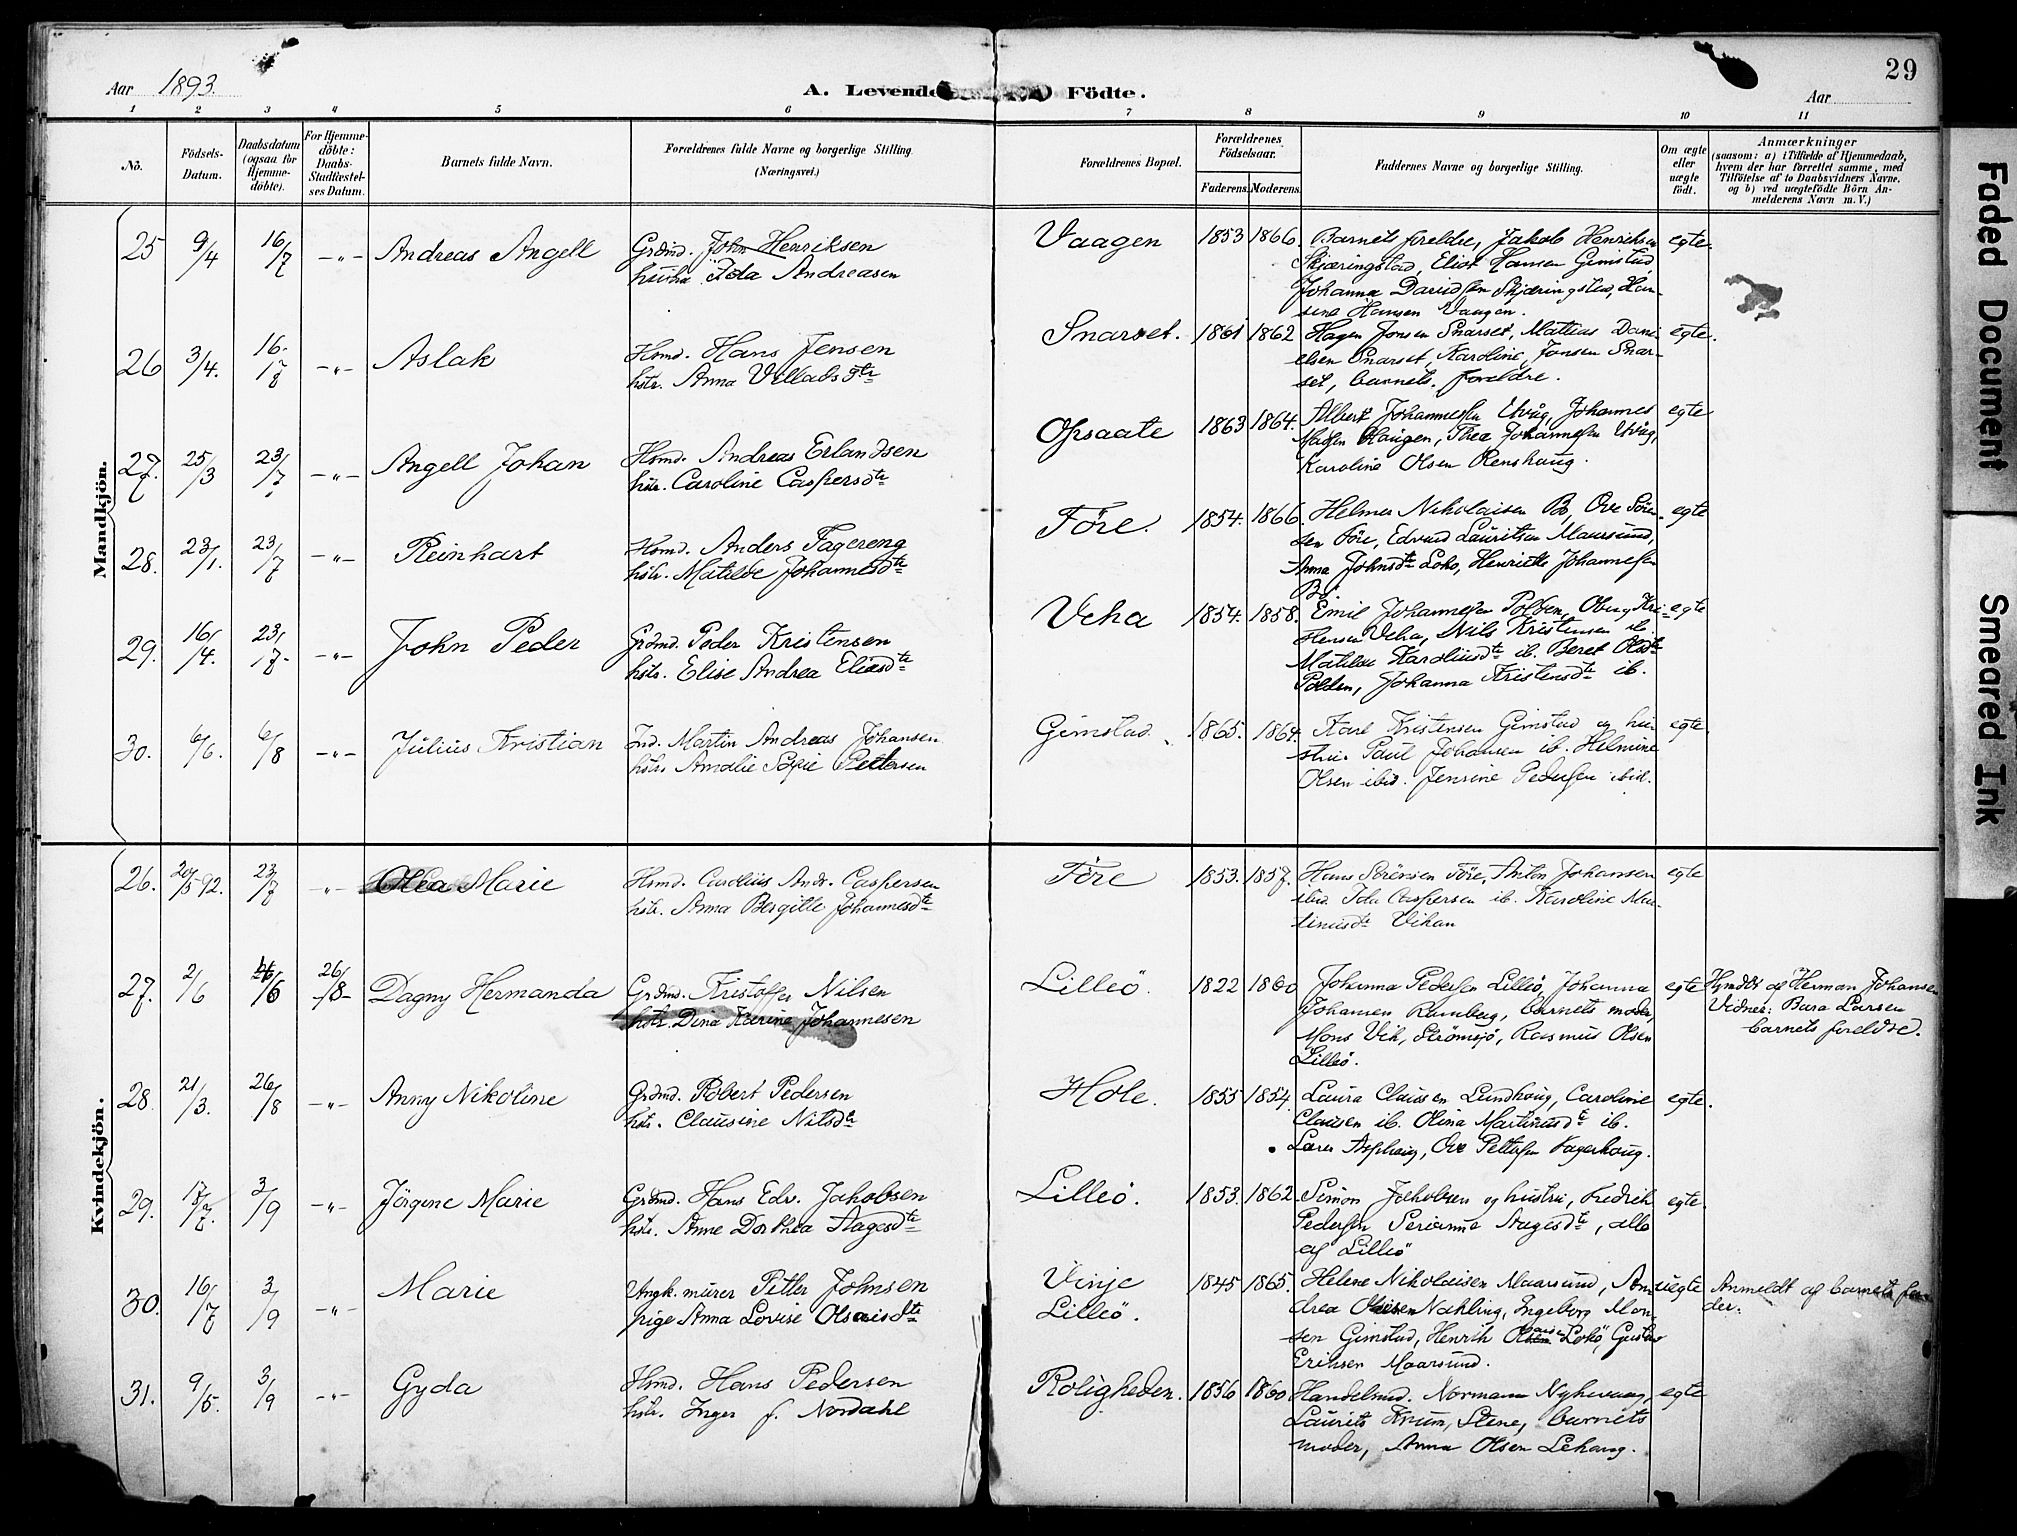 29
Aar 1893.
A. Levende Födte.
Aar
1 2 3 4 5 6 7 8 9 10 11
No.
Födsels-Datum.
Daabsdatum (ogsaa for Hjemme-döbte).
For Hjemme-döbte: Daabs-Stadfæstel-ses Datum.
Barnets fulde Navn.
Forældrenes fulde Navne og borgerlige Stilling. (Næringsvei.)
Forældrenes Bopæl.
Forældrenes Födselsaar.
Faderens. Moderens.
Faddernes Navne og borgerlige Stilling.
Om ægte eller uægte født.
Anmærkninger
(saasom: a) i Tilfælde af Hjemmedaab,
hvem der har forrettet samme, med
Tilföielse af to Daabsvidners Navne,
og b) ved uægtefödte Börn An-
melderens Navn m. V.)
Mandkjön.
25 9/4 16/7 -"- Andreas Angell
Grdmd. John Henriksen
hustru Ida Andreasen
Vaagen 1853 1866.
Barnets foreldre, Jakob Henriksen
Skjæringstad, Eliot Hansen Gimstad,
Johanna Davidsen Skjæringstad, Han-
sine Hansen Vaagen.
egte.
26 3/4. 16/7 -"- Aslak
Hsmd. Hans Jensen
hstr. Anna Villadsdtr
Snarset. 1861 1862
Hagen Jonsen Snarset, Mathias Dani-
elsen Snarset, Karoline Jonsen Snar-
set, barnets foreldre.
egte.
27. 25/3 23/7 -"- Angell Johan
Hsmd. Andreas Erlandsen
hstr. Caroline Caspersdtr
Opsaate 1863 1864.
Albert Johannessen Utvåg, Johannes
Madsen Haugen, Thea Johannessen Utvåg,
Karoline Olsen Renshaug.
egte
28. 23/1. 23/7 -"- Reinhart
Hsmd. Anders Fagereng
hstr. Matilde Johannesdtr
Före. 1854. 1866.
Helmer Nikolaisen Bö, Ove Sören-
sen Före, Edvard Lauritsen Maarsund,
Anna Johnsdtr Loko, Henriette Johannesen
Bö.
egte
29. 16/4. 23/7. -"- John Peder
Grdmd. Peder Kristensen
hstr. Elise Andrea Eliasdtr
Veha 1854. 1858.
Emil Johannessen Polden, Oluf Kri-
stensen Veha, Nils Kristensen ib
Matilde Karoliusdtr ib. Beret Olsdtr
Polden, Johanna Kristensdtr ib.
egte
30. 6/6. 6/8 -"- Julius Kristian
Ind. Martin Andreas Johansen
hstr. Amalie Sofie Pettersen
Gimstad. 1865. 1864.
Karl Kristensen Gimstad og hu-
stru. Paul Johansen ib. Helmine
Olsen ibid. Jensine Pedersen ibid.
egte.
Kvindekjön.
26. 20/5 92. 23/7 -"- Olea Marie
Hsmd. Carolius Andr. Caspersen
hstr. Anna Bergitte Johannesdtr
Före 1853. 1857.
Hans Sörensen Före, Anton Johansen
ibid. Ida Caspersen ib. Karoline Mar-
tinusdtr Vikan
egte
27. 2/6 26/8 Dagny Hermanda
Grdmd. Kristoffer Nilsen
hstr. Dina Karine Johannesen
Lilleö. 1822 1860
Johanna Pedersen Lilleö, Johanna
Johansen Ramberg, barnets moder,
Mons Vik, Strömsjö, Rasmus Olsen
Lilleö.
egte
Hjmdbt af Herman Johansen
Vidner: Bara Larsen
barnets foreldre.
28. 21/3. 26/8 -"- Anny Nikoline
Grdmd. Robert Pedersen
hstr. Clausine Nilsdtr
Hole. 1855 1854.
Laura Clausen Lundhaug, Caroline
Clausen ib. Olina Martinusdtr ib.
Lars Asphaug, Ove Pettersen Fagerhaug.
egte.
29. 3/9 -"- Jörgine Marie
Grdmd. Hans Edv. Jakobsen
hstr. Anne Dorthea Aagesdtr
Lilleö. 1853. 1862.
Simon Jakobsen og hustru, Fredrik
Pedersen Serianna Aagesdtr, alle
af Lilleö
egte.
30. 16/7 3/9 -"- Marie
Ungk. murer Petter Johnsen
pige Anna Lovise Olsaisdtr
Vinje
Lilleö.
1845 1865.
Helene Nikolaisen Maarsund, An-
drea Nahling, Ingeborg Mon-
sen Gimstad, Henrik Lokö, Gustav
Eriksen Maarsund.
uegte
Anmeldt af barnets fa-
der.
31. 9/5. 3/9 -"- Gyda
Hsmd. Hans Pedersen
hstr. Inger f. Nordahl
Roligheden. 1856 1860
Handelsmd. Normann Nyhevaag,
Laurits Krum, Stene, barnets
moder, Anna Olsen Lehaug.
egte
Faded Document
Smeared Ink